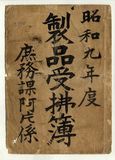 昭和九年度
製品受拂簿
庶務課阿片係